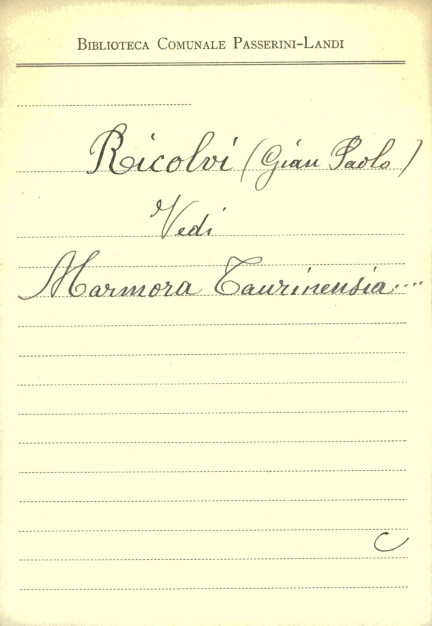 Biblioteca Comunale Passerini-Landi
Ricolvi (Gian Paolo)
Vedi
Marmora Taurinensia....
C